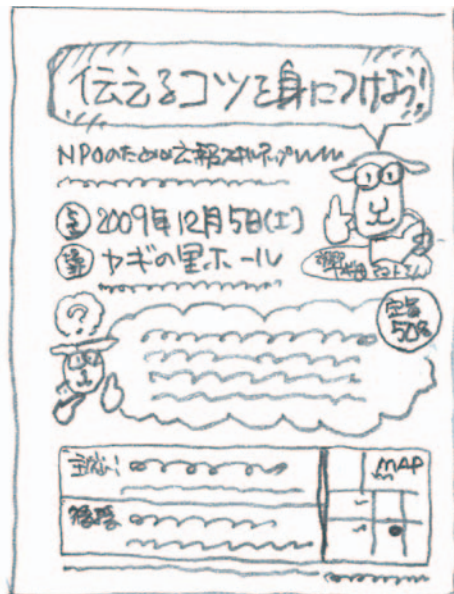 伝えるコツを身につけよう!
NPOのための広報スキルアップ
2009年12月5日(土)
ヤギの里ホール
?
定員
50名
主催:
MAP
後援